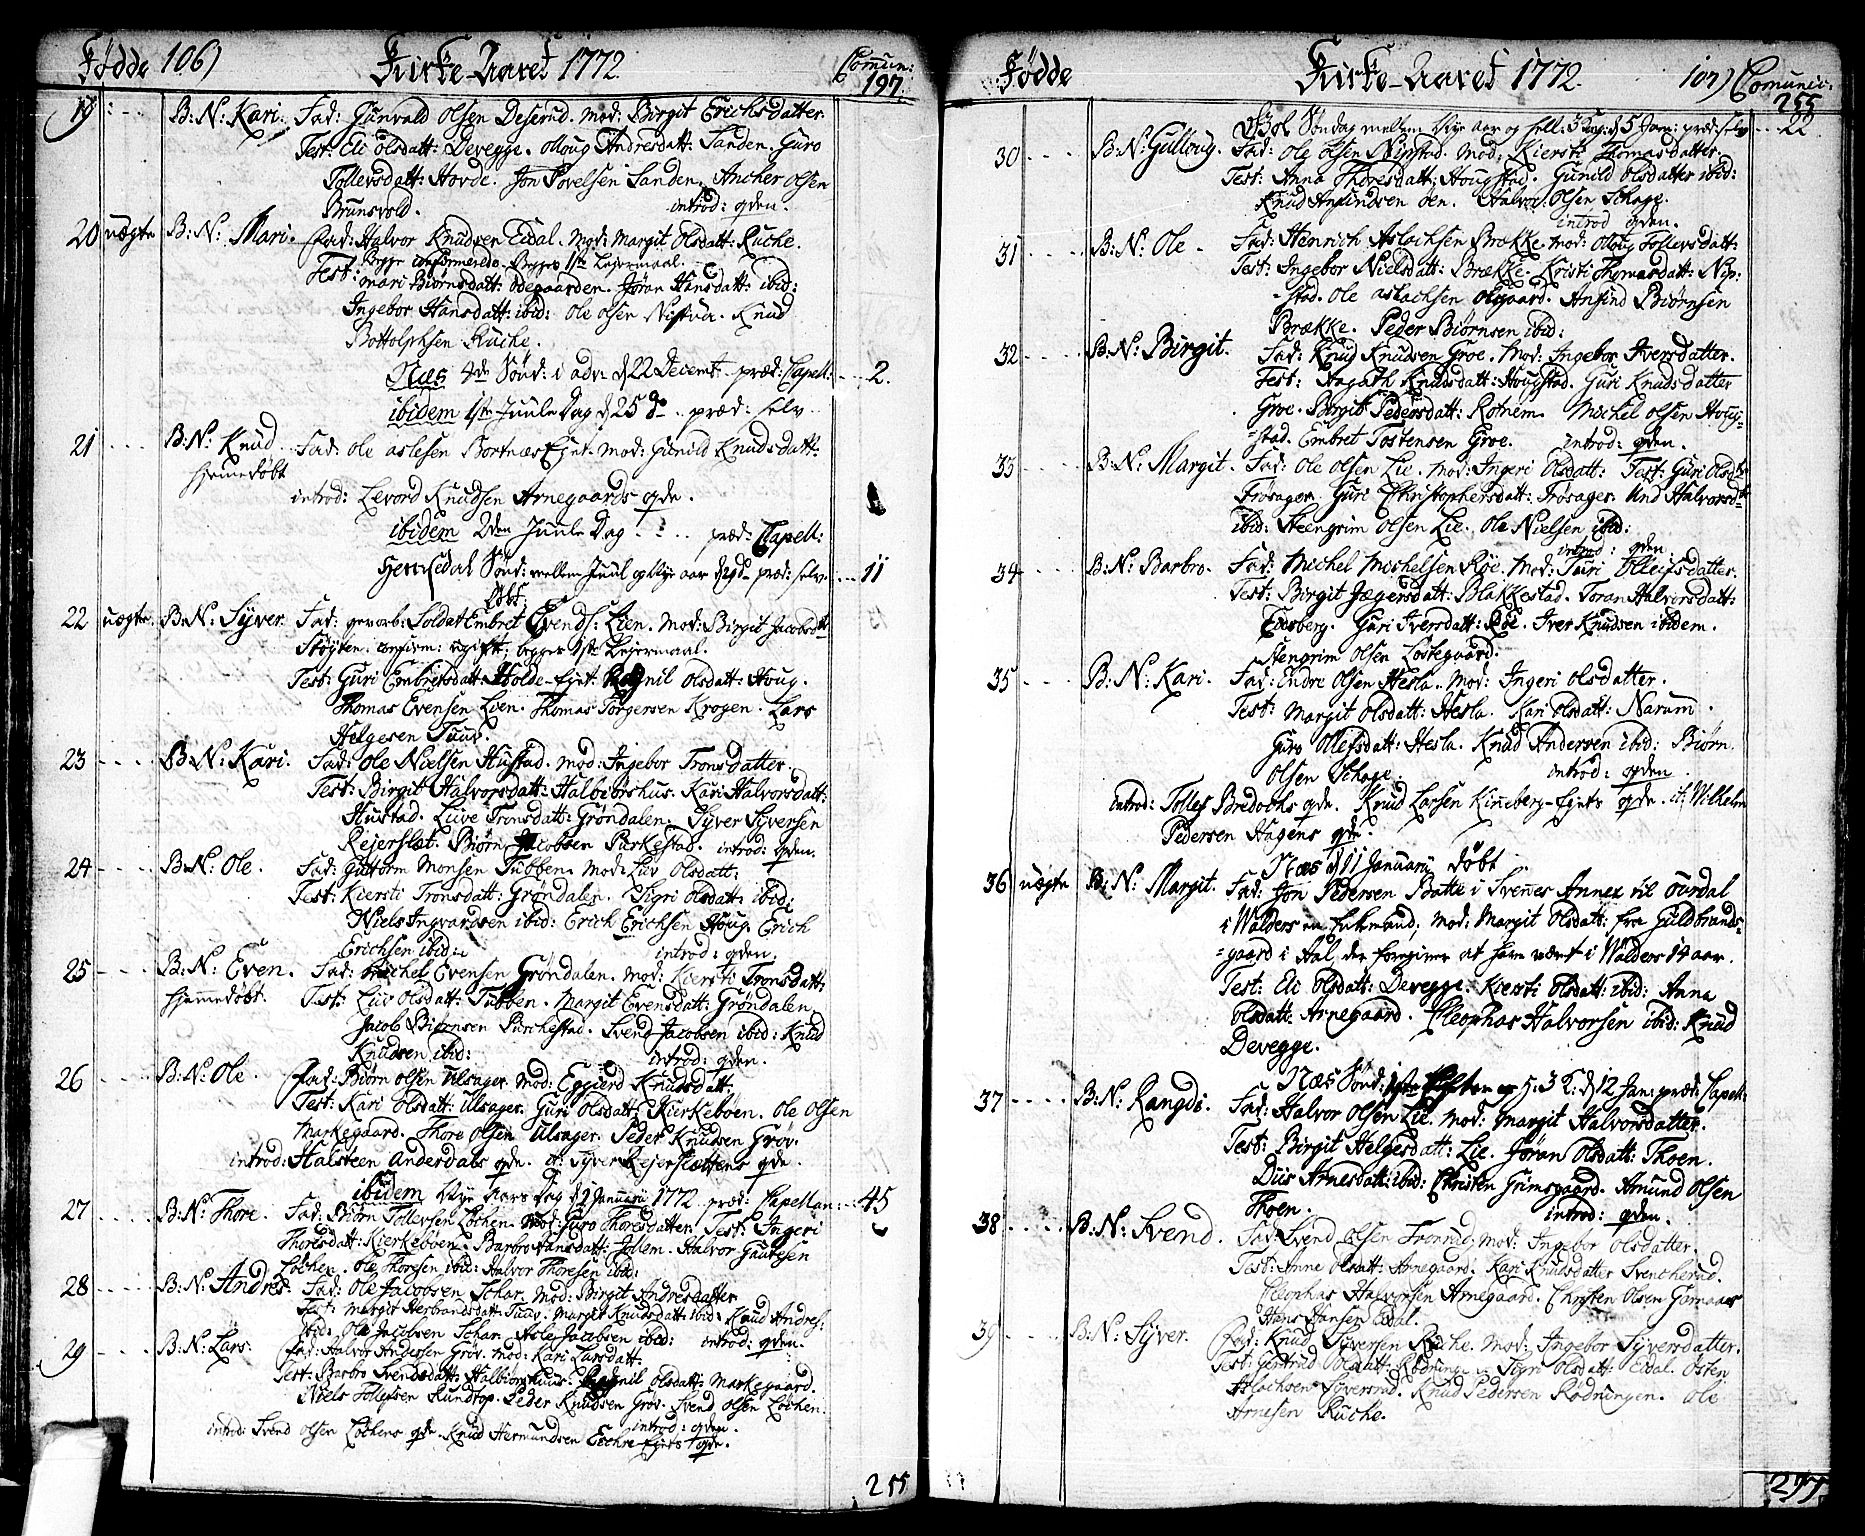 Fødde 106) Kirke-Aaret 1772 Comun:
197.
19 B: N: Kari. Fad: Gunvald Olsen Deserud. mod: Birgit Erichsdatter.
Test: Eli Olsdatt: Devegge. Olloug Andresdatt: Sanden. Guro
Tollevsdatt: Hovde. Jon Povelsen Sanden. Ancher Olsen
Brunsvold. introd: qden.
20 uægte B: N: Mari. Fad: Halvor Knudsen Eidal. Mod: Margit Olsdatt: Ruche.
Begge confirmerede. Begges 1ste Lejermaal.
Test: Mari Biørnsdatt: Odegaarden. Jøran Hansdatt: ibid:
Ingebor Hansdatt: ibid: Ole Olsen Nistua. Knud
Bottolphsen Ruche.
Næs 4de Sønd: i adv. d 22 Decembr. præd: Capell: 2.
ibidem 1ste Juule Dag d 25 do præd: selv
21 B: N: Knud Fad: Ole Aslesen Bortnæs Ejet. mod: Gunild Knudsdatt:
hjemmedøbt
introd: Levord Knudsen Arnegaards qde.
ibidem 2den Juule Dag præd: Capell:
Hemsedal Sønd: mellem Juul og Nye aar d 29d præd: selv 11
Døbt:
22 uægte B: N: Syver Fad: gevorb: Soldat Embret Evends: Lien. Mod: Birgit Jacobsdtt
Støyten. confirm: ugift; begges 1ste Lejermaal.
Test: Guri Embretsdatt: Holde-Ejet. Ragnil Olsdatt: Houg.
Thomas Evensen Lien. Thomas Torgersen Krogen. Lars
Helgesen Tuuv.
23 B: N: Kari. Fad: Ole Nielsen Hustad. mod: Ingebor Tronsdatter.
Test: Birgit Halvorsdatt: Halbiørhus. Kari Halvorsdatt:
Hustad. Live Tronsdatt: Grøndalen. Syver Syversen
Rejerslet. Biørn Jacobsen Purkestad. introd: qden.
24 B: N: Ole. Fad: Guttorm Monsen Tubben. mod: Liv Olsdatt:
Test: Kiersti Tronsdatt: Grøndalen. Sigri Olsdatt: ibid:
Niels Ingvardsen ibid: Erich Erichsen Houg. Erich
Erichsen ibid: introd: qden.
25 B: N: Even. Fad: Michel Evensen Grøndalen. mod: Kiersti Tronsdatt:
hjemmedøbt. Test: Liv Olsdatt: Tubben. Margit Evensdatt: Grøndalen.
Jacob Biørnsen Purchestad. Svend Jacobsen ibid: Knud
Knudsen ibid: introd: qden.
26 B: N: Ole. Fad: Biørn Olsen Ulsager. mod: Eggierd Knudsdatt:
Test: Kari Olsdatt: Ulsager. Guri Olsdatt: Kirkebøen. Ole Olsen
Markegaard. Thore Olsen Ulsager. Peder Knudsen Grøv.
introd: Halsteen Anderdals qde. it: Syver Rejerslættens qde.
ibidem Nye Aars Dag d 1 Januarii 1772 præd: Capellan: 45
27 B: N: Thore. Fad: Biørn Tollevsen Løchen. mod: Guro Thoresdatter. Test: Ingeri
Thoresdatt: Kierkebøen. Barbro Hansdatt: Jollem. Halvor Gautsen
Løchen. Ole Thoresen ibid: Halvor Thoresen ibid:
28 B: N: Andres. Fad: Ole Jacobsen Schar. mod: Birgit Andresdatter
Test: Margit Herbrandsdatt: Tuuv. Margit Knudsdatt: ibid: Knud Andres:
ibid: Ole Jacobsen Schar. Asle Jacobsen ibid: introd: qden.
29 B: N: Lars. Fad: Halvor Andersen Grøv. mod: Kari Larsdatt:
Test: Barbro Svendsdatt: Halbiørhuus. Ragnil Olsdatt: Markegaard.
Niels Tollefsen Rundtop. Peder Knudsen Grøv. Svend Olsen Løchen.
introd: qden.
introd: Svend Olsen Løchens qde. Knud Hermundsen Eechre Ejets qde.
255
Fødde Kirke-Aaret 1772. 107) Comunic:
255
Gol Søndag mellem Nye aar og hell: 3 Kong: d 5 Jan: præd: selv 22
30 B: N: Gulloug. Fad: Ole Olsen Nipstad. mod: Kiersti Thomasdatter.
Test: Anna Thoresdatt: Hougstad. Gunild Olsdatter ibid:
Knud Anfindsen Øen. Halvor Olsen Schage.
introd qden.
31 B: N: Ole. Fad: Henrich Aslachsen Brække. mod: Oloug Tollevsdatt:
Test: Ingebor Nielsdatt: Brække. Kristi Thomasdatt: Nip:
-stad. Ole Aslachsen Olgaard. Anfind Biørnsen
Brække. Peder Biørnsen ibid:
32 B: N: Birgit. Fad: Knud Knudsen Groe. mod: Ingebor Iversdatter.
Test: Hagath Knudsdatt: Hougstad. Guri Knudsdatter
Groe. Birgit Pedersdatt: Rotnem. Michel Olsen Houg-
-stad. Embret Tostensen Groe. introd: qden.
33 B: N: Margit. Fad: Ole Olsen Lie. mod: Ingeri Olsdatt: Test: Guri Olsdtr
Frøsager. Guri Christophersdatt: Frøsager. Und Halvorsdtr
ibid: Steengrim Olsen Lie. Ole Nielsen ibid:
introd: qden.
34 B: N: Barbro. Fad: Michel Michelsen Røe. mod: Turi Olleifsdatter.
Test: Birgit Jægersdatt: Blakkestad. Joran Halvorsdatt:
Eidsberg. Guri Iversdatt: Røe. Iver Knudsen ibidem.
Stengrim Olsen Løstegaard.
35 B: N: Kari. Fad: Endre Olsen Hesla. mod: Ingeri Olsdatter.
Test: Margit Olsdatt: Hesla. Kari Olsdatt: Narum.
Guro Ollefsdatt: Hesla. Knud Andersen ibid: Biørn
Olsen Schage. introd: qden.
introd: Tollef Bredochs qde. Knud Larsen Kinneberg-Ejets qde. it: Wilhelm
Pedersen Hagens qde.
Næs d 11 Januarii døbt
36 uægte B: N: Margit. Fad: Jon Pedersen Batte i Svenes Annex til Ourdal
i Walders en Enkemand; mod: Margit Olsdatt: fra Guldbrands-
-gaard i Aal, der foregiver at have vært i Walders 14 aar.
Test: Eli Olsdatt: Devegge. Kiersti Olsdatt: ibid: Anna
Olsdatt: Arnegaard. Cleophas Halvorsen ibid: Knud
Devegge.
Næs Sønd: 1ste efter H: 3 K: d 12 Jan: præd: Capell:
37 B: N: Rangdi. Fad: Halvor Olsen Lie. mod: Margit Halvorsdatter.
Test: Birgit Helgesdatt: Lie. Jøran Olsdatt: Thoen.
Diis Arnesdatt: ibid: Christen Grimsgaard. Amund Olsen
Thoen. introd: qden.
38 B: N: Svend. Fad: Svend Olsen Trønrud. mod: Ingebor Olsdatter.
Test: Anne Olsdatt: Arnegaard. Kari Knudsdatter Sventherud.
Cleophas Halvorsen Arnegaard. Christen Olsen Garnaas
Hans Hansen Eidal.
39 B: N: Syver. Fad: Knud Syversen Ruche. mod: Ingebor Syversdatter.
Test: Gertrud Olsdatt: Rødninge. Sigri Olsdatt: Eidal. Østen
Aslachsen Syversrud. Knud Pedersen Rødningen. Ole
Arnesen Ruche.
277